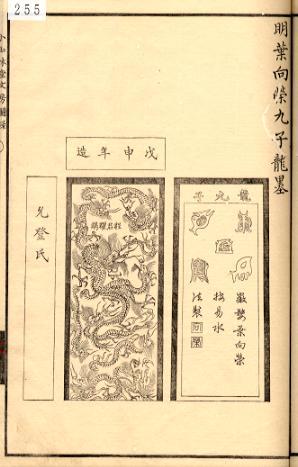 255
明葉向榮九子龍墨
龍九子
徽婺葉向榮
按易水
法製
戊申年造
允登氏